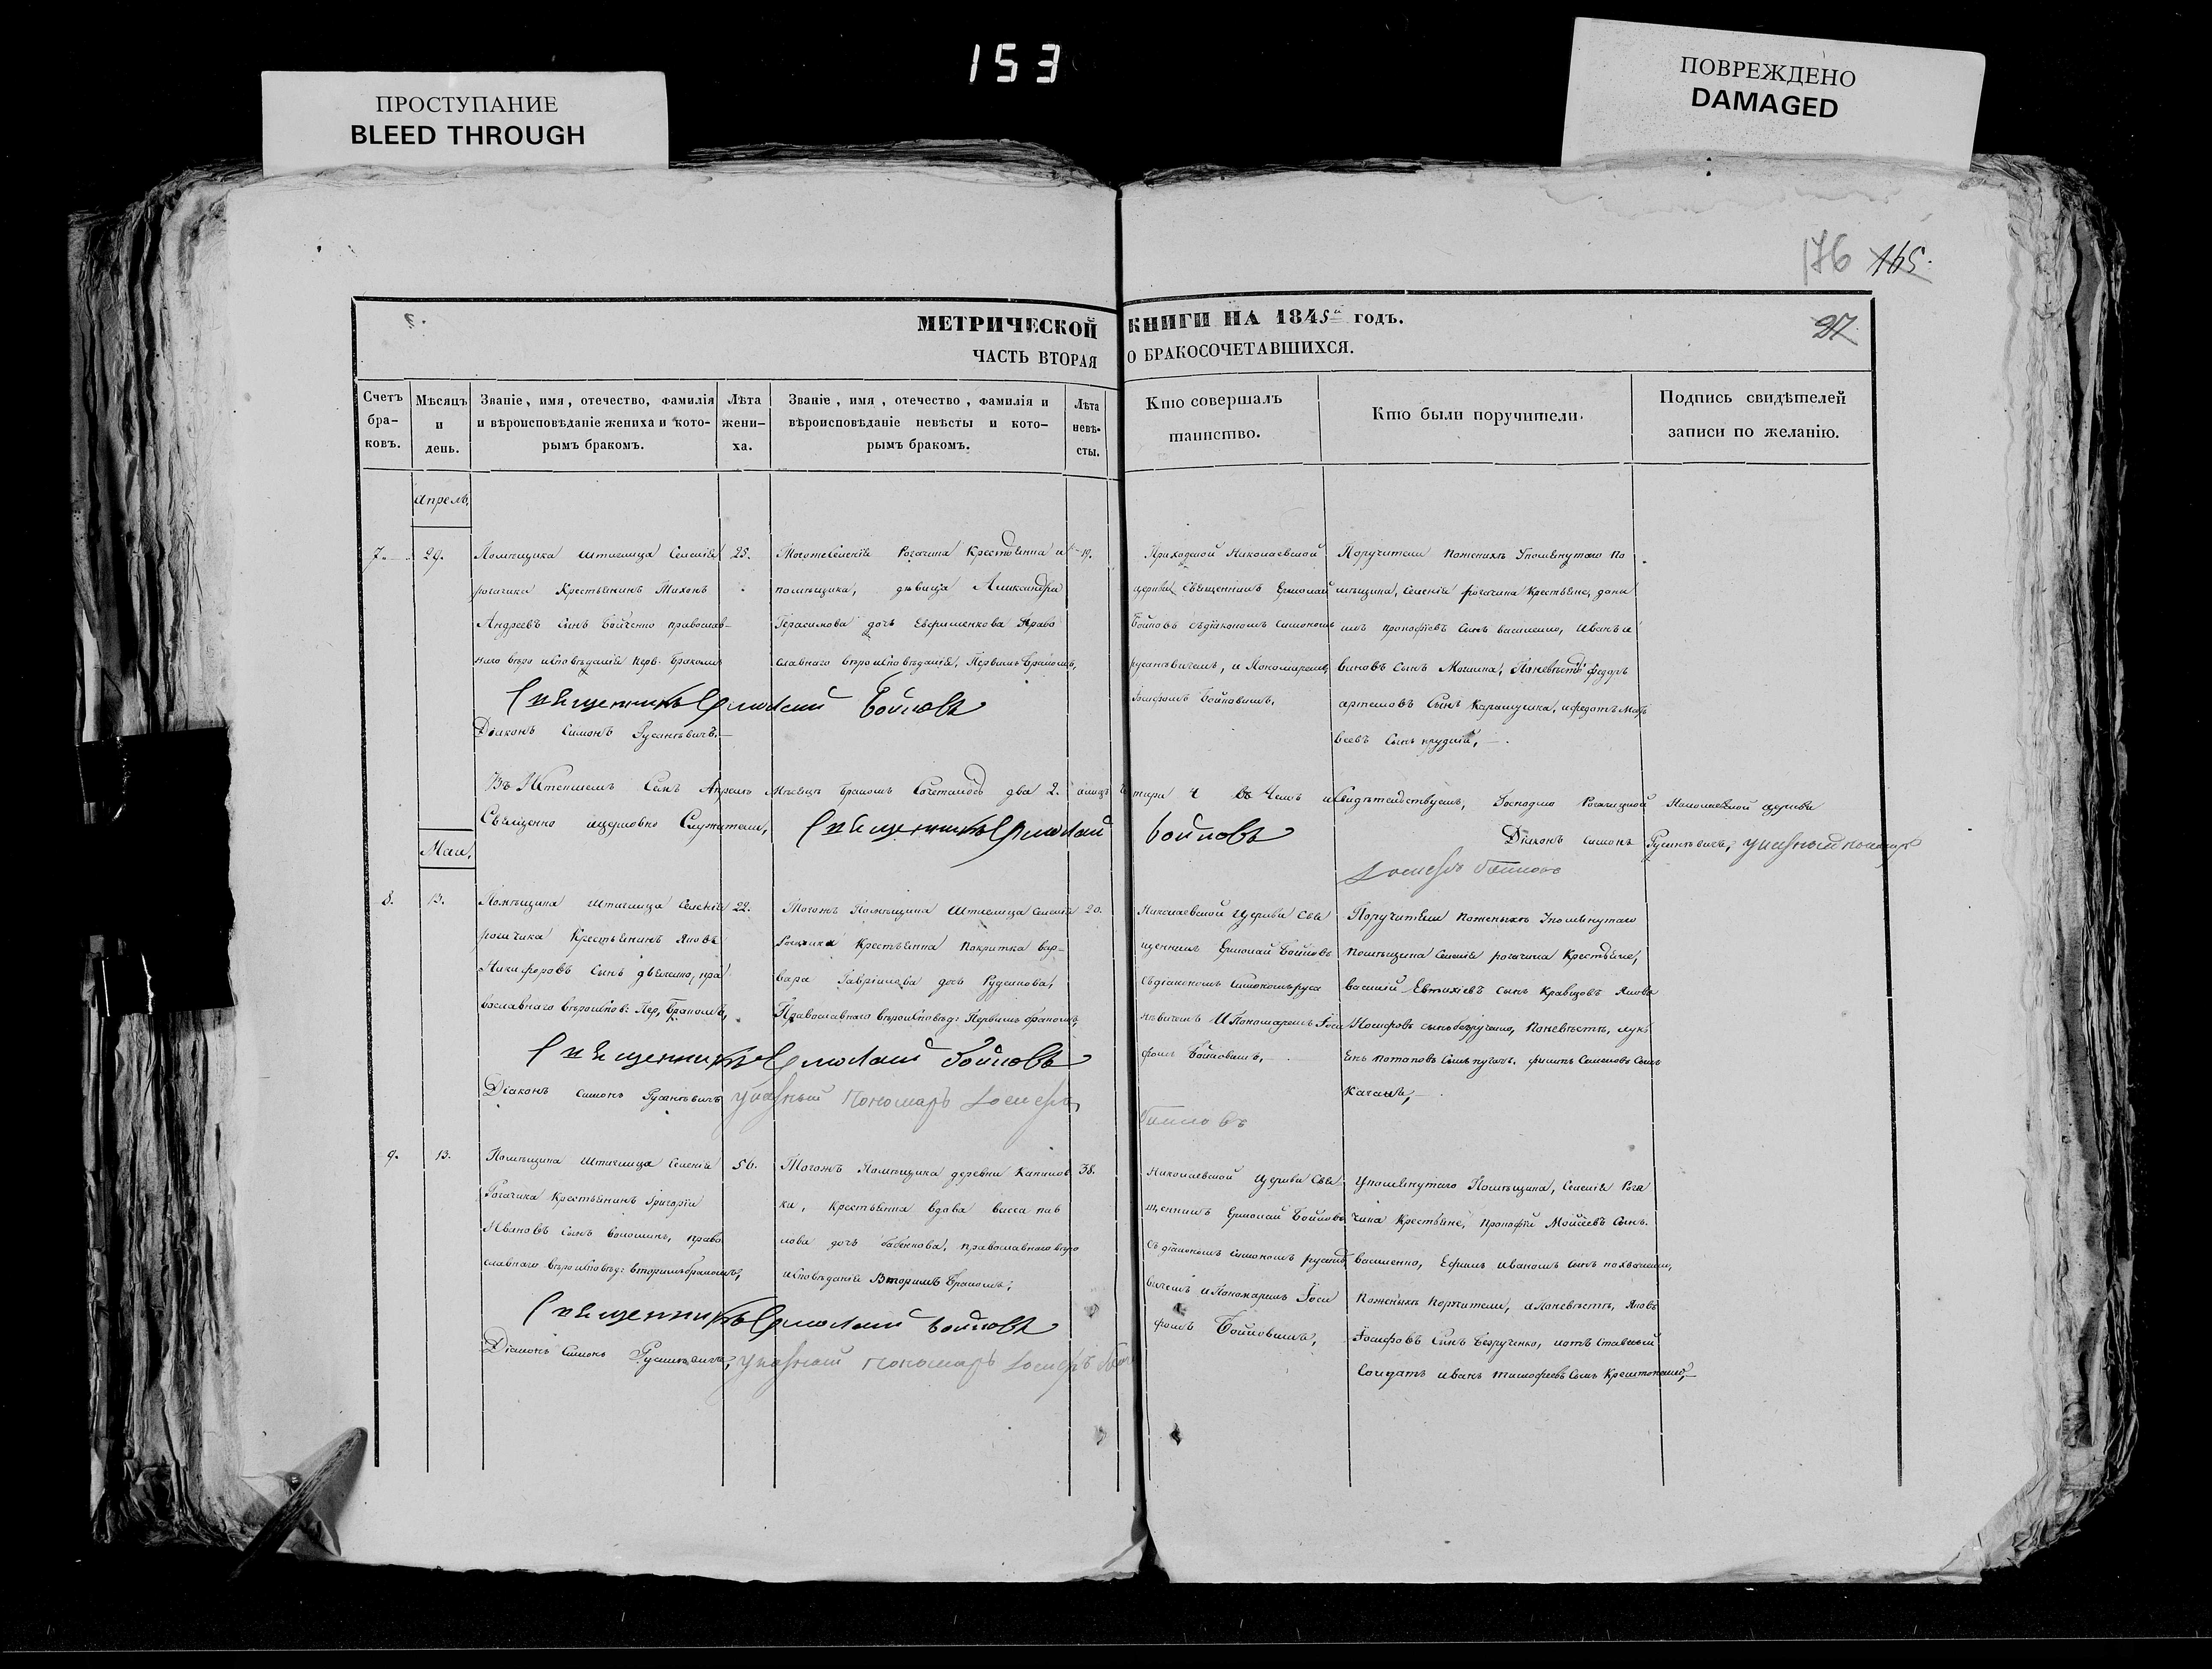 153
ПРОСТУПАНИЕ
BLEED THROUGH
ПОВРЕЖДЕНО
DAMAGED
176 165.
МЕТРИЧЕСКОЙ КНИГИ НА 1845й годъ.
27
ЧАСТЬ ВТОРАЯ О БРАКОСОЧЕТАВШИХСЯ.
Счетъ браковъ.
Мѣсяцъ и день.
Званіе, имя, отечество, фамилія
и вѣроисповѣданіе жениха и кото-
рымъ бракомъ.
Лѣта жени-
ха.
Званіе, имя, отечество, фамилія и
вѣроисповѣданіе невѣсты и кото-
рымъ бракомъ.
Лѣта
невѣ-
сты.
Кто совершалъ
таинство.
Кто были поручители.
Подпись свидѣтелей
записи по желанію.
Апрель,
7. 29.
Помѣщика Штиглица Селенія
рогачика Крестьянинъ Тихонъ
Андреевъ сынъ Бойченко православ-
наго вѣро исповѣданія перв. Бракомъ
25.
Тогоже Селенія Рогачика Крестьянка
помѣщика, дѣвица Александра
Герасимова дочь Евфименкова Право
славнаго вѣро исповѣданія, Первымъ Бракомъ,
19.
Приходской Николаевской
церкви Священникъ Ермолай
Бойновъ съ діакономъ Симономъ
русаневичемъ, и Пономаремъ
Іосифомъ Бойновимъ,
Поручители Поженихъ Упомянутаго По
мѣщика, Селенія рогачика Крестьяне,
прокофіевъ Сынъ василенко, Иванъ
сынъ Поневѣстѣ федоръ
артемовъ Сынъ Карамушка, и федотъ Мат
веевъ Сынъ
Священникъ Ермолай Бойновъ
Діаконъ Симонъ Русаневичъ.
Въ Апреле Мѣсяце Бракомъ Сочеталось два 2.
4 въ Чемъ и Свидѣтельствуемъ, Николаевской церкви
Священно ицерковно Служители, Священникъ Ермолай Бойновъ
Діаконъ Симонъ Русаневичъ, указный пономаръ
Іосифъ Бойновъ
Май,
8. 13.
Помѣщика Штиглица Селенія
рогачика Крестьянинъ Яковъ
Никифоровъ Сынъ пра
вославнаго вѣроиспов: Пер, Бракомъ,
22.
Тогожъ Помѣщика Штиглица Селенія
Рогачика Крестьянка Покритка вар-
вара Гавріилова дочь Руденкова,
Православнаго вѣроисповѣд: Первымъ бракомъ,
20.
Николаевской церкви Свя
щенникъ Ермолай Бойновъ
съ діакономъ Симономъ руса
невичемъ И Пономаремъ Іоси
фомъ Бойновимъ,
Поручители Поженихъ Упомянутаго
помѣщика Селенія рогачика Крестьяне,
василій Евтихіевъ сынъ Кравцовъ Яковъ
Іосифовъ сынъ безрученко, Поневѣстѣ, лукъ
янъ потаповъ Сынъ филипъ Семеновъ Сынъ
Качанъ,
Священникъ Ермолай Бойновъ
Діаконъ Симонъ Русаневичъ указный пономаръ Іосифъ
Бойновъ
9. 13.
Помѣщика Штиглица Селенія
Рогачика Крестьянинъ Григорій
Ивановъ сынъ волошинъ, право
славнаго вѣро исповѣд: вторымъ бракомъ,
56.
Тогожъ Помѣщика деревни Каинов
ки, крестьянка вдова васса пав
лова дочь бабенкова, православнаго вѣро
исповѣданія Вторымъ Бракомъ,
38.
Николаевской Церкви Свя
щенникъ Ермолай Бойновъ
съ діакономъ Симономъ русане
вичемъ и Пономаремъ Іоси
фомъ Бойновимъ,
Упомянутаго Помѣщика, Селенія Рога
чика Крестьяне, прокофій Мойсеевъ Сынъ
василенко, Ефимъ
Поженихъ Поручители, а Поневѣстѣ, Яковъ
Іосифовъ Сынъ Безрученко, иотъ Ставный
Солдатъ иванъ тимофеевъ Сынъ
Священникъ Ермолай Бойновъ
Діаконъ Симонъ Русаневичъ, указный пономаръ Іосифъ